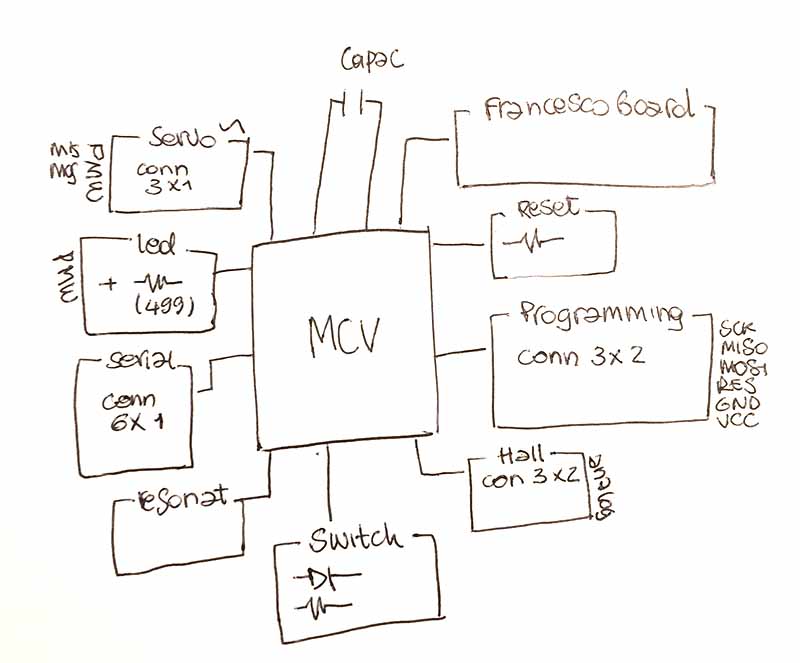 Capac
Francesco Board
Servo
conn
3x1
PWM
Reset
led
+
(499)
PWM
MCV
Programming
conn 3x2
SCK
MISO
MOSI
RES
GND
VCC
Serial
conn
6x1
Hall
con 3x2
resonat
Switch